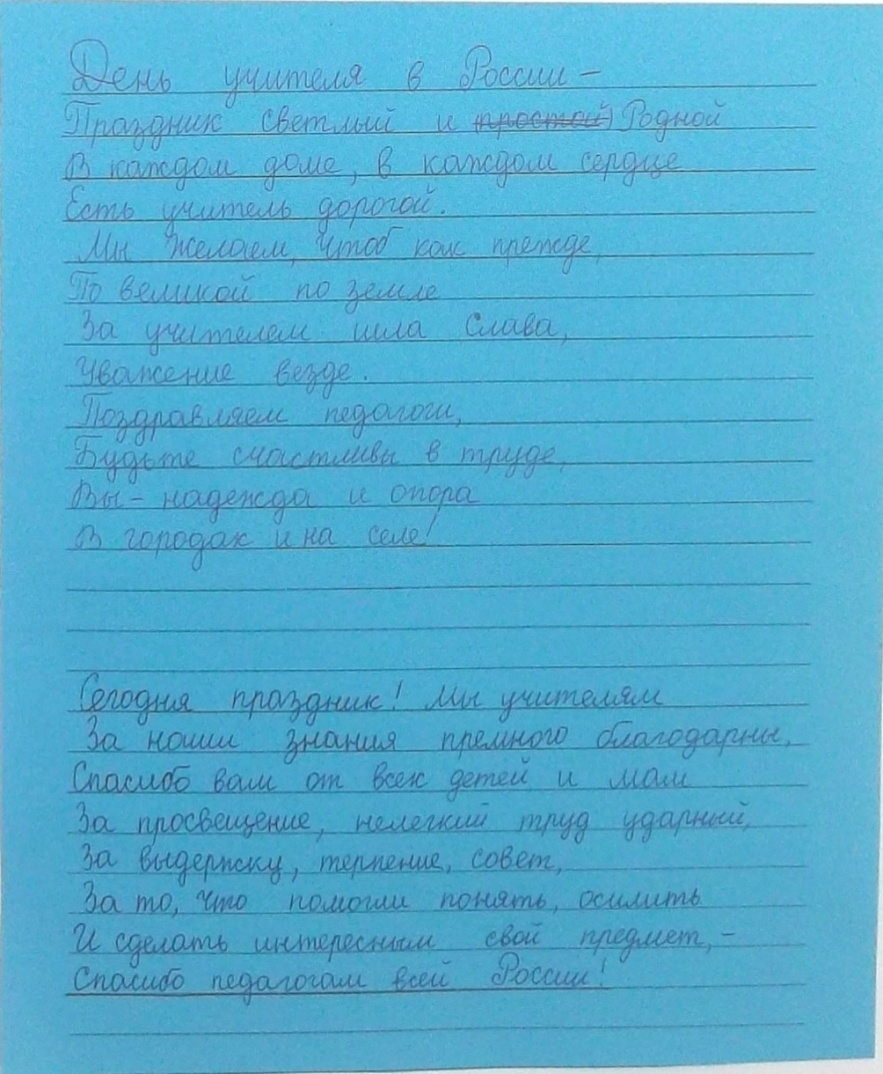 День учителя в России –
Праздник светлый и простой Родной
В каждом доме, в каждом сердце
Есть учитель дорогой.
Мы желаем, чтоб как прежде,
По великой по земле
За учителем шла слава,
Уважение везде.
Поздравляем педагоги,
Будьте счастливы в труде,
Вы – надежда и опора
В городах и на селе!
Сегодня праздник! Мы учителям
За наши знания премного благодарны,
Спасибо вам от всех детей и мам
За просвещение, нелегкий труд ударный,
За выдержку, терпение, совет,
За то, что помогли понять, осилить
И сделать интересным свой предмет, –
Спасибо педагогам всей России!